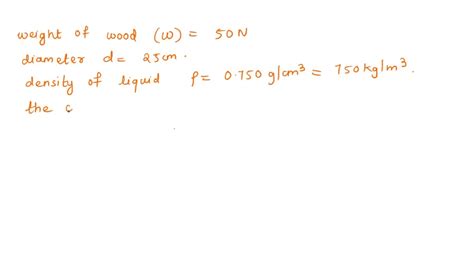 weight of wood (w) = 50 N
diameter d = 25cm.
density of liquid ρ = 0.750 g/cm³ = 750 kg/m³.
the c